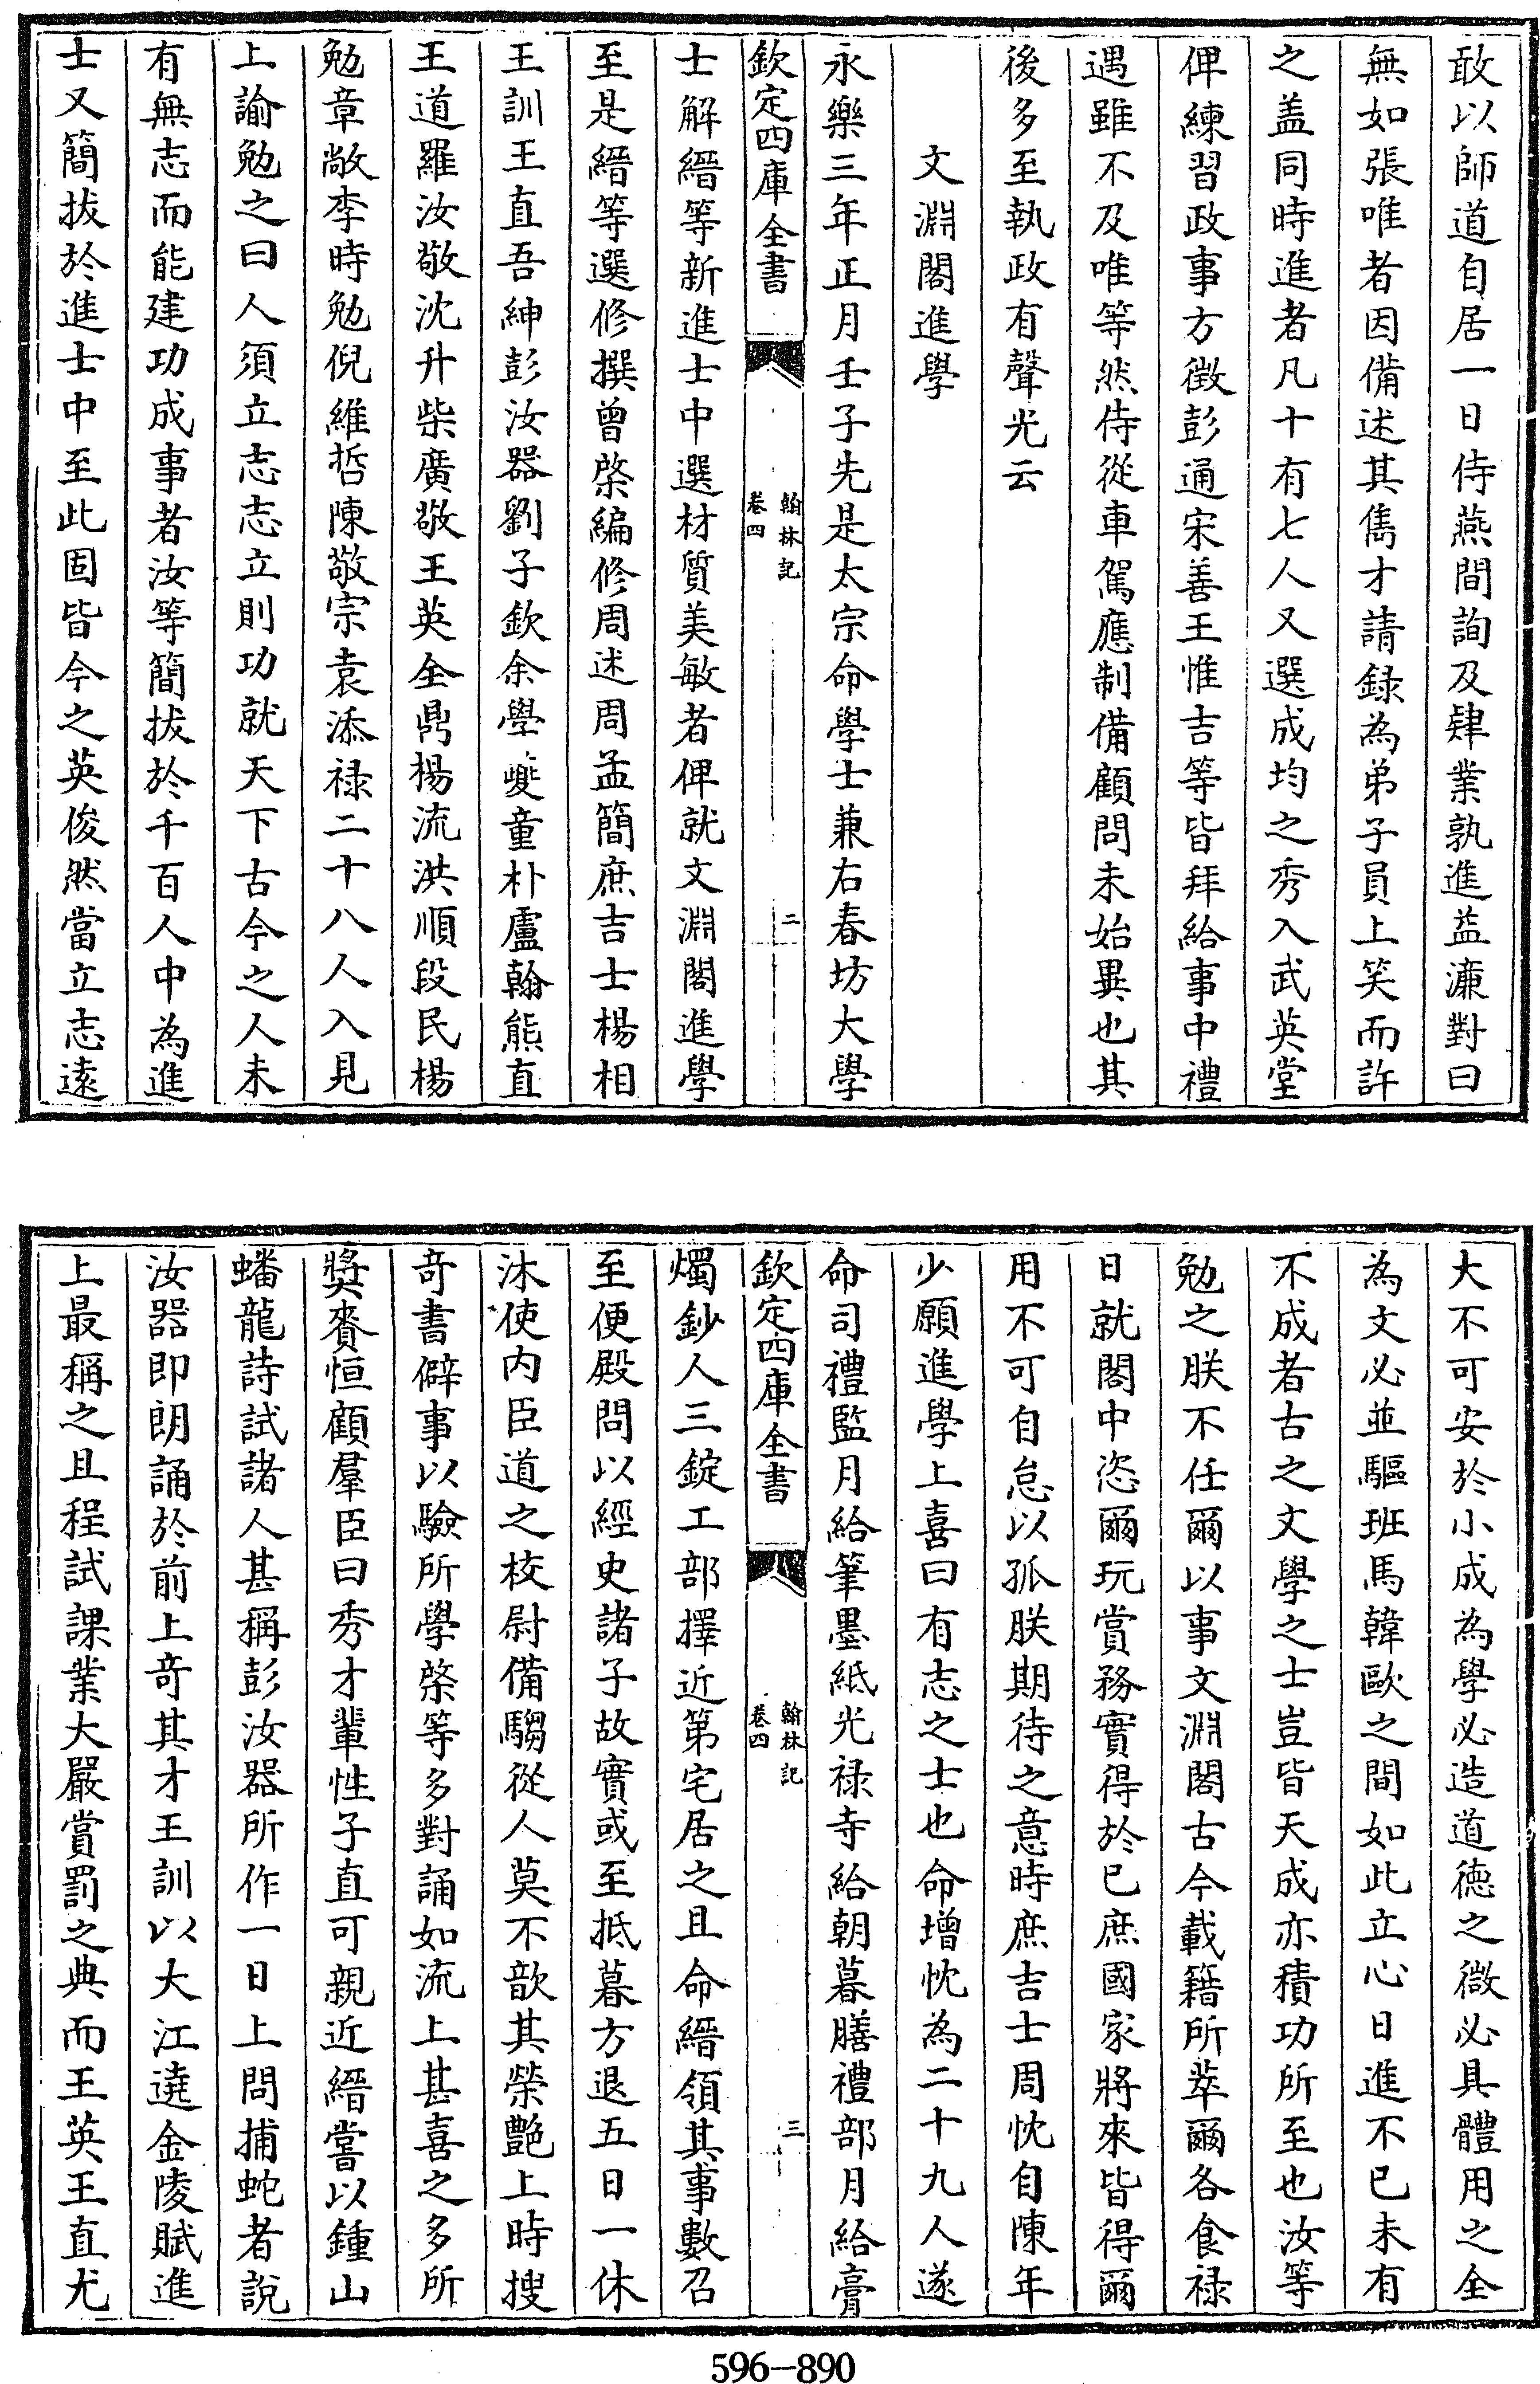 敢以師道自居一日侍燕間詢及肄業孰進益濂對曰
無如張唯者因備述其雋才請録為弟子員上笑而許
之盖同時進者凡十有七人又選成均之秀入武英堂
俾練習政事方徵彭通宋善王惟吉等皆拜給事中禮
遇雖不及唯等然侍從車駕應制備顧問未始異也其
後多至執政有聲光云
文淵閣進學
永樂三年正月壬子先是太宗命學士兼右春坊大學
欽定四庫全書
翰林記
卷四
二
士解縉等新進士中選材質美敏者俾就文淵閣進學
至是縉等選修撰曾棨編修周述周孟簡庶吉士楊相
王訓王直吾紳彭汝器劉子欽余學夔童朴盧翰熊直
王道羅汝敬沈升柴廣敬王英全鼎楊流洪順段民楊
勉章敞李時勉倪維哲陳敬宗袁添禄二十八人入見
上諭勉之曰人須立志志立則功就天下古今之人未
有無志而能建功成事者汝等簡拔於千百人中為進
士又簡拔於進士中至此固皆今之英俊然當立志遠
大不可安於小成為學必造道德之微必具體用之全
為文必並驅班馬韓歐之間如此立心日進不已未有
不成者古之文學之士豈皆天成亦積功所至也汝等
勉之朕不任爾以事文淵閣古今載籍所萃爾各食禄
日就閣中恣爾玩賞務實得於已庶國家將來皆得爾
用不可自怠以孤朕期待之意時庶吉士周忱自陳年
少願進學上喜曰有志之士也命增忱為二十九人遂
命司禮監月給筆墨紙光禄寺給朝暮膳禮部月給膏
欽定四庫全書
翰林記
卷四
三
燭鈔人三錠工部擇近第宅居之且命縉領其事數召
至便殿問以經史諸子故實或至抵暮方退五日一休
沐使内臣道之校尉備騶從人莫不歆其榮艶上時搜
奇書僻事以驗所學棨等多對誦如流上甚喜之多所
奬賚恒顧羣臣曰秀才輩性子直可親近縉嘗以鍾山
蟠龍詩試諸人甚稱彭汝器所作一日上問捕蛇者説
汝器即朗誦於前上奇其才王訓以大江遶金陵賦進
上最稱之且程試課業大嚴賞罰之典而王英王直尤
596-890